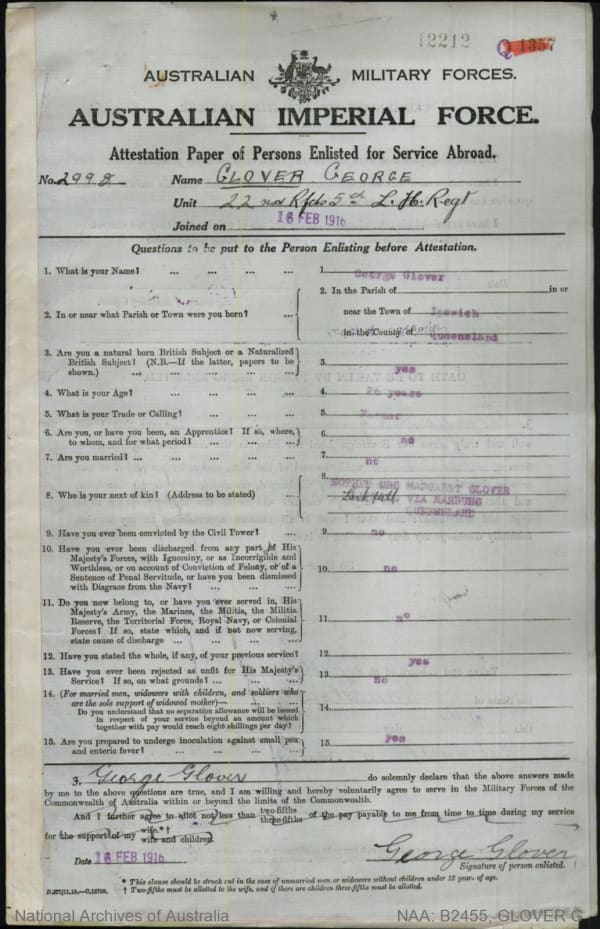 12212
Q 1357
AUSTRALIAN MILITARY FORCES.
AUSTRALIAN IMPERIAL FORCE.
Attestation Paper of Persons Enlisted for Service Abroad.
No. 2998 Name GLOVER GEORGE
Unit 22nd Rfts 5th L.H. Regt
Joined on 16 FEB 1916
Questions to be put to the Person Enlisting before Attestation.
1. What is your Name? ... ... ... ... 1. George Glover
2. In or near what Parish or Town were you born? ... 2. In the Parish of in or
near the Town of Ipswich
in the County of Queensland
3. Are you a natural born British Subject or a Naturalized
British Subject? (N.B.—If the latter, papers to be
shown.) ... ... ... ... 3. yes
4. What is your Age? ... ... ... 4. 26 years
5. What is your Trade or Calling? ... ... ... 5.
6. Are you, or have you been, an Apprentice? If so, where,
to whom, and for what period? ... ... ... 6. no
7. Are you married? ... ... ... ... 7. no
8. Who is your next of kin? (Address to be stated) ... 8. MOTHER MRS MARGARET GLOVER
Lark Hill VIA MARBURG
QUEENSLAND
9. Have you ever been convicted by the Civil Power? ... 9. no
10. Have you ever been discharged from any part of His
Majesty's Forces, with Ignominy, or as Incorrigible and
Worthless, or on account of Conviction of Felony, or of a
Sentence of Penal Servitude, or have you been dismissed
with Disgrace from the Navy? ... ... ... 10. no
11. Do you now belong to, or have you ever served in, His
Majesty's Army, the Marines, the Militia, the Militia
Reserve, the Territorial Force, Royal Navy, or Colonial
Forces? If so, state which, and if not now serving,
state cause of discharge ... ... ... ... 11. no
12. Have you stated the whole, if any, of your previous service? 12. yes
13. Have you ever been rejected as unfit for His Majesty's
Service? If so, on what grounds? ... ... ... 13. no
14. (For married men, widowers with children, and soldiers who
are the sole support of widowed mother)—
Do you understand that no separation allowance will be issued
in respect of your service beyond an amount which
together with pay would reach eight shillings per day?
15. Are you prepared to undergo inoculation against small pox
and enteric fever? ... ... ... ... 15. yes
I, George Glover do solemnly declare that the above answers made
by me to the above questions are true, and I am willing and hereby voluntarily agree to serve in the Military Forces of the
Commonwealth of Australia within or beyond the limits of the Commonwealth.
And I further agree to allot not less than two-fifths three-fifths of the pay payable to me from time to time during my service
for the support of my wife.*† wife and children.
Date 16 FEB 1916
George Glover
Signature of person enlisted.
* This clause should be struck out in the case of unmarried men or widowers without children under 18 years of age.
† Two-fifths must be allotted to the wife, and if there are children three-fifths must be allotted.
National Archives of Australia NAA: B2455, GLOVER G